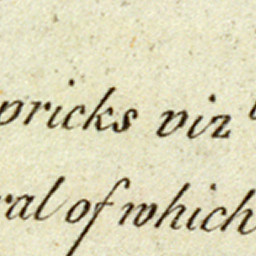 pricks viz
ral of which